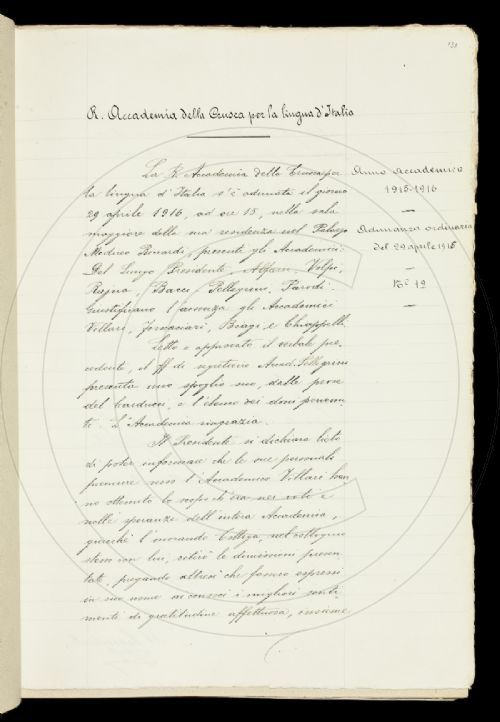 131
R. Accademia della Crusca per la lingua d'Italia
La R. Accademia della Crusca per
la lingua d'Italia s'è adunata il giorno
29 aprile 1916, ad ore 15, nella sala
maggiore della sua residenza nel Palazzo
Mediceo Riccardi, presenti gli Accademici:
Del Lungo Presidente, Alfani, Volpi,
Rajna, Bacci, Pellegrini, Parodi.
Giustificano l'assenza gli Accademici
Villari, Fornaciari, Biagi e Chiappelli.
Letto e approvato il verbale pre-
cedente, il ff di segretario Accad. Pellegrini
presenta uno spoglio suo, dalle prose
del Carducci, e l'elenco dei doni pervenu-
ti. L'Accademia ringrazia.
Il Presidente si dichiara lieto
di poter informare che le sue personali
premure verso l'Accademico Villari han-
no ottenuto lo scopo ch'era nei voti e
nelle speranze dell'intera Accademia,
giacchè l'onorando Collega, nel colloquio
avuto con lui, ritirò le dimissioni presen-
tate, pregando altresì che fossero espressi
in suo nome ai consoci i migliori senti-
menti di gratitudine affettuosa, insieme
Anno Accademico
1915-1916
Adunanza ordinaria
del 29 aprile 1916
N.º 12